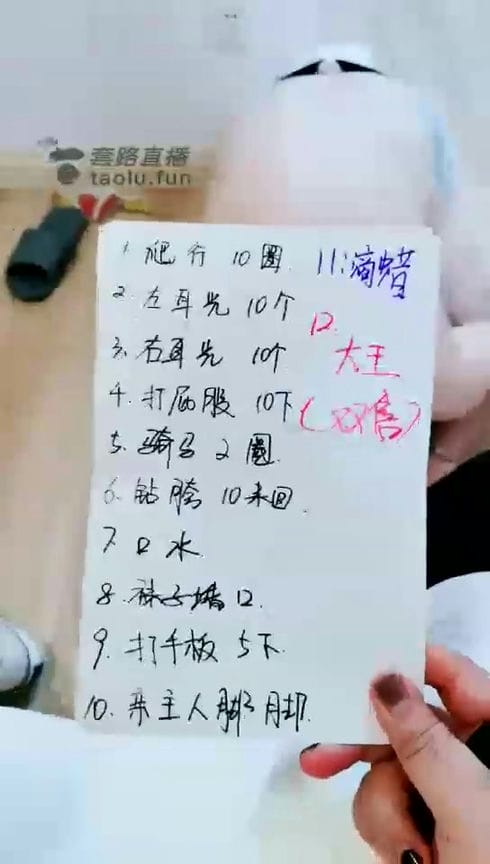 套路直播
taolu.fun
1. 爬行 10圈
2. 左耳光 10个
3. 右耳光 10个
4. 打屁股 10下
5. 骑马 2圈
6. 钻胯 10来回
7. 口水
8. 袜子堵口
9. 打手板 5下
10. 亲主人脚 3脚
11: 滴蜡
12.
大王
(双倍)